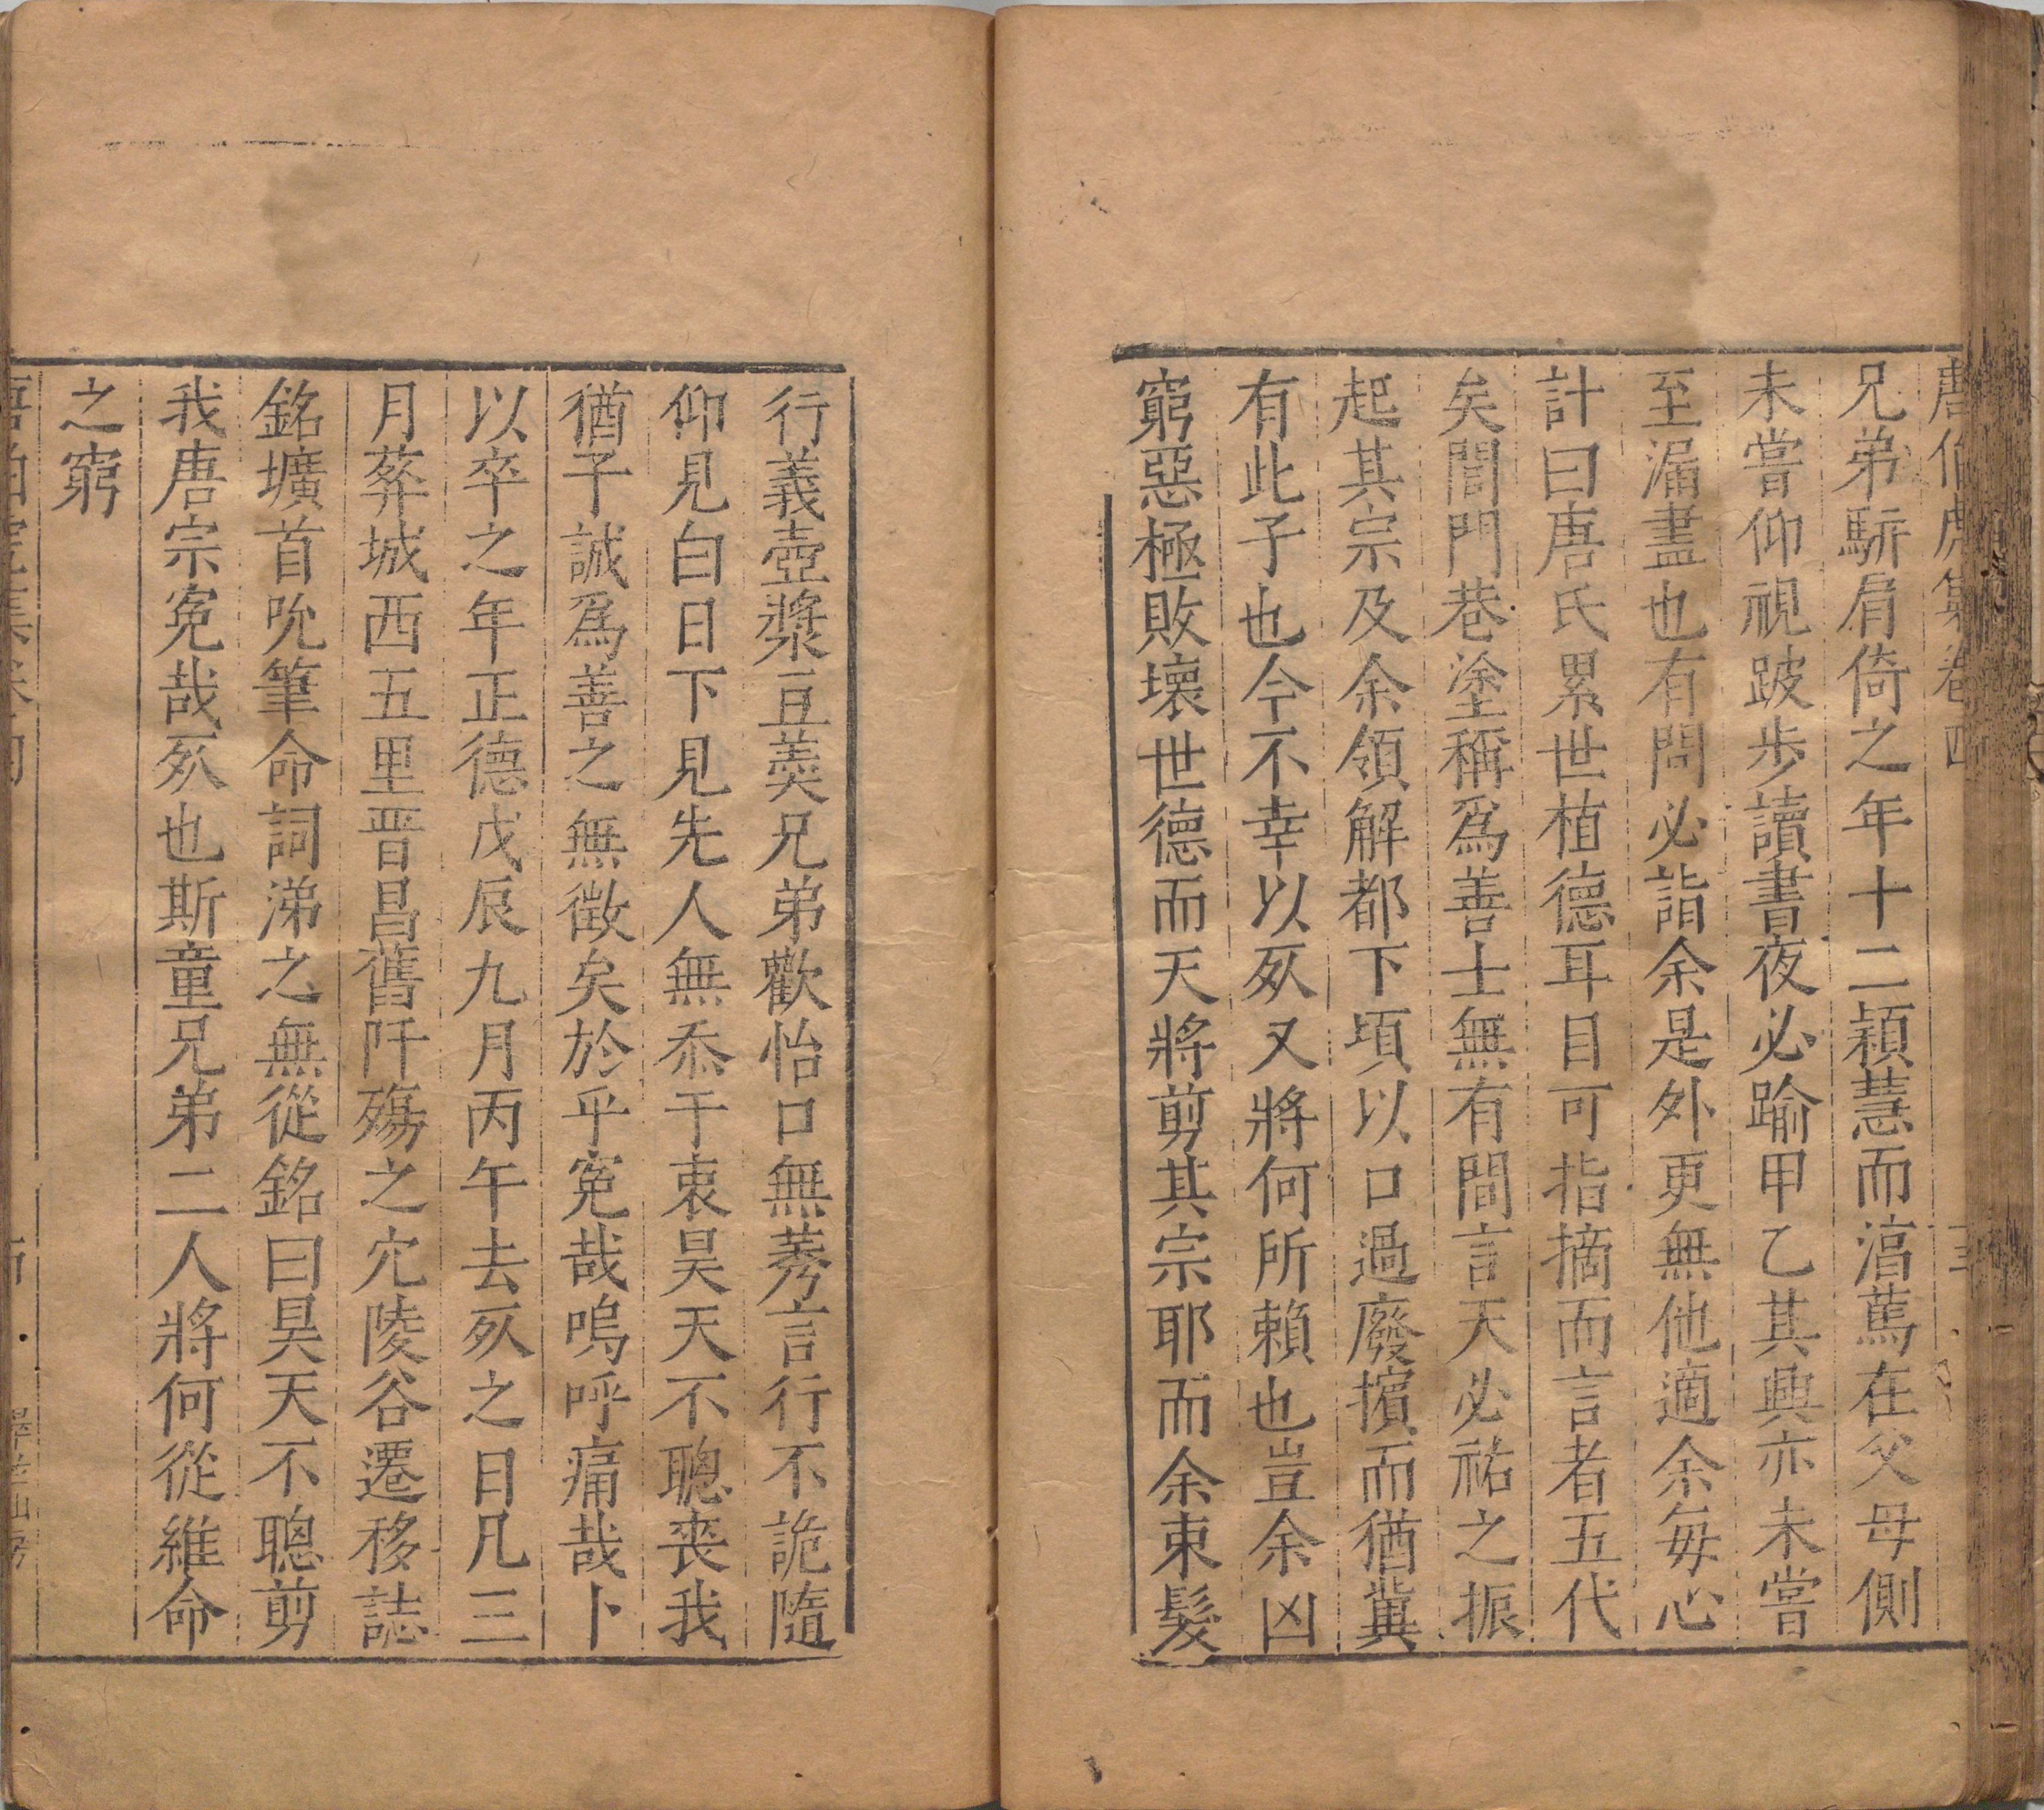 唐伯虎集卷四 三
兄弟駢肩倚之年十二穎慧而淳篤在父母側
未嘗仰視跛步讀書夜必踰甲乙其興亦未嘗
至漏盡也有問必詣余是外更無他適余每心
計曰唐氏累世植德耳目可指摘而言者五代
矣閭門巷塗稱爲善士無有間言天必祐之振
起其宗及余領解都下頃以口過廢擯而猶冀
有此子也今不幸以死又將何所賴也豈余凶
窮惡極敗壞世德而天將剪其宗耶而余束髮
行義壺漿豆羹兄弟歡怡口無莠言行不詭隨
仰見白日下見先人無忝于衷昊天不聰喪我
猶子誠爲善之無徵矣於乎冤哉嗚呼痛哉卜
以卒之年正德戊辰九月丙午去死之日凡三
月葬城西五里晋昌舊阡殤之穴陵谷遷移誌
銘壙首吮筆命詞涕之無從銘曰昊天不聰剪
我唐宗冤哉死也斯童兄弟二人將何從維命
之窮